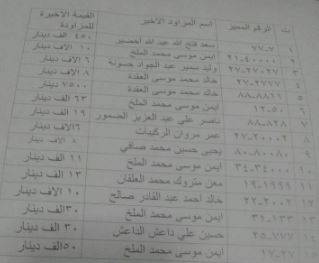 ت الرقم المميز اسم المزاود الاخير القيمة الاخيرة للمزاودة
١ ٧٧-٧ سعد فتح الله عبد الله اخضير ٤٥٠ الف دينار
٢ ٢١-٤٠٠٠٠ ايمن موسى محمد الملخ ١٠ الاف دينار
٣ ٢٧-٢٧٠٢٧ وليد سمير عبد الجواد حسونة ٦ الاف دينار
٤ ٢٧-٢٧٧٧ خالد محمد موسى العقدة ٨ الاف دينار
٥ ٨٨-٨٨١١ خالد محمد موسى العقدة ٧٥٠٠ دينار
٦ ١٢-٥٠ ايمن موسى محمد الملخ ٦٣ الف دينار
٧ ٨٨-٨٢٨ ناصر علي عبد العزيز الضمور ١٩ الف دينار
٨ ٢٧-٢٠٠٠٢ عمر مروان الركيبات ٦ الاف دينار
٩ ٨٠-٨٠٠٨٠ يحيى حسين محمد صافي ٨ الاف دينار
١٠ ٣٤-٣٤٠٠٠ ايمن موسى محمد الملخ ١١ الف دينار
١١ ١٩-١٩٩٩ معن متروك محمد العلقان ١٣ الف دينار
١٢ ٢٧-٢٠٠٢ خالد احمد عبد القادر صالح ١٠ الاف دينار
٣١-١٣٣ ايمن موسى محمد الملخ ٣٠ الف دينار
٢٥-٧٧٧ حسين علي داعش الداعش ٣٠ الف دينار
١٧-٢٧ ايمن موسى محمد الملخ ٥٠ الف دينار